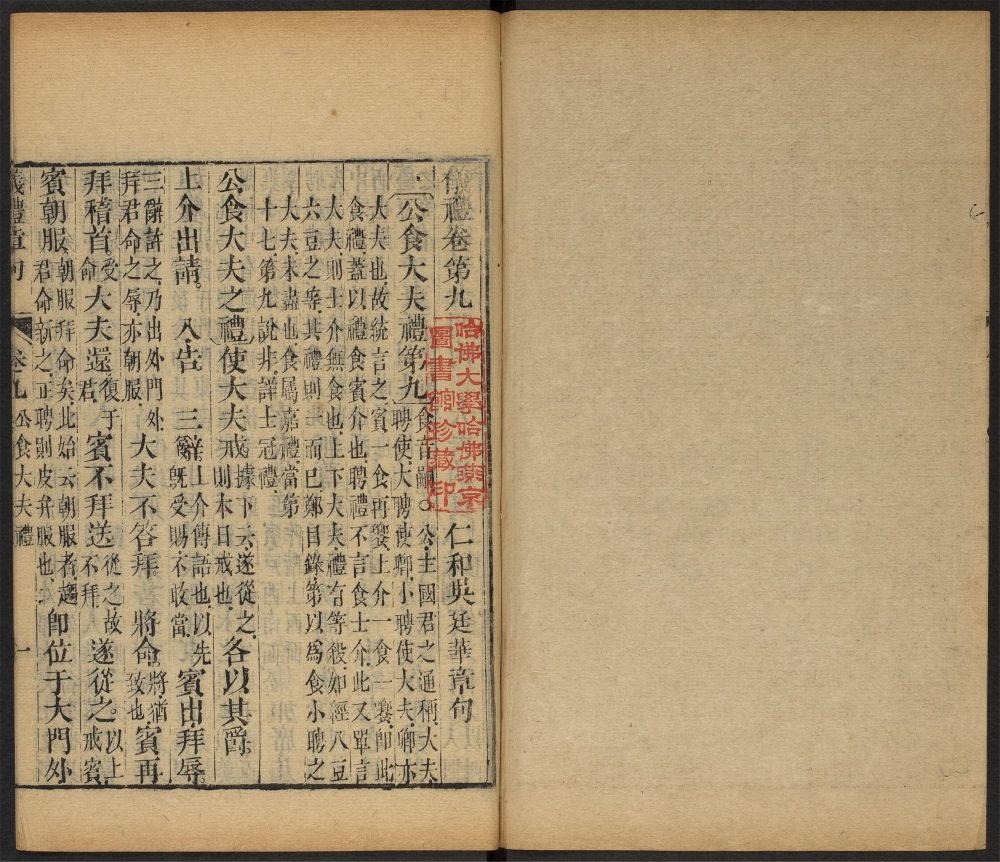 儀禮卷第九
仁和吳廷華章句
公食大夫禮第九
食音嗣○公主國君之通稱大夫
聘使大聘使卿小聘使大夫卿亦
大夫也故統言之賓一食再饗上介一食一饗卽此
食禮蓋以禮食賓介也聘禮不言食士介此又單言
大夫則士介無食也上下大夫禮有等殺如經八豆
六豆之等其禮則一而已鄭目錄第以爲食小聘之
大夫未盡也食屬嘉禮當第
十七第九說非詳士冠禮
公食大夫之禮使大夫戒
據下云遂從之
則本日戒也
各以其爵
上介出請入告三辭
上介傳語也以先
旣受賜不敢當
賓出拜辱
三辭許之乃出外門外
拜君命之辱亦朝服
大夫不答拜將命
將猶
致也
賓再
拜稽首
受
命
大夫還
復于
君
賓不拜送
從之故
不拜
遂從之
以上
戒賓
賓朝服
朝服拜命矣此始云朝服者趨
君命新之正聘則皮弁服也
卽位于大門外
儀禮章句
卷九
公食大夫禮
一
哈佛大學哈佛燕京
圖書館珍藏印